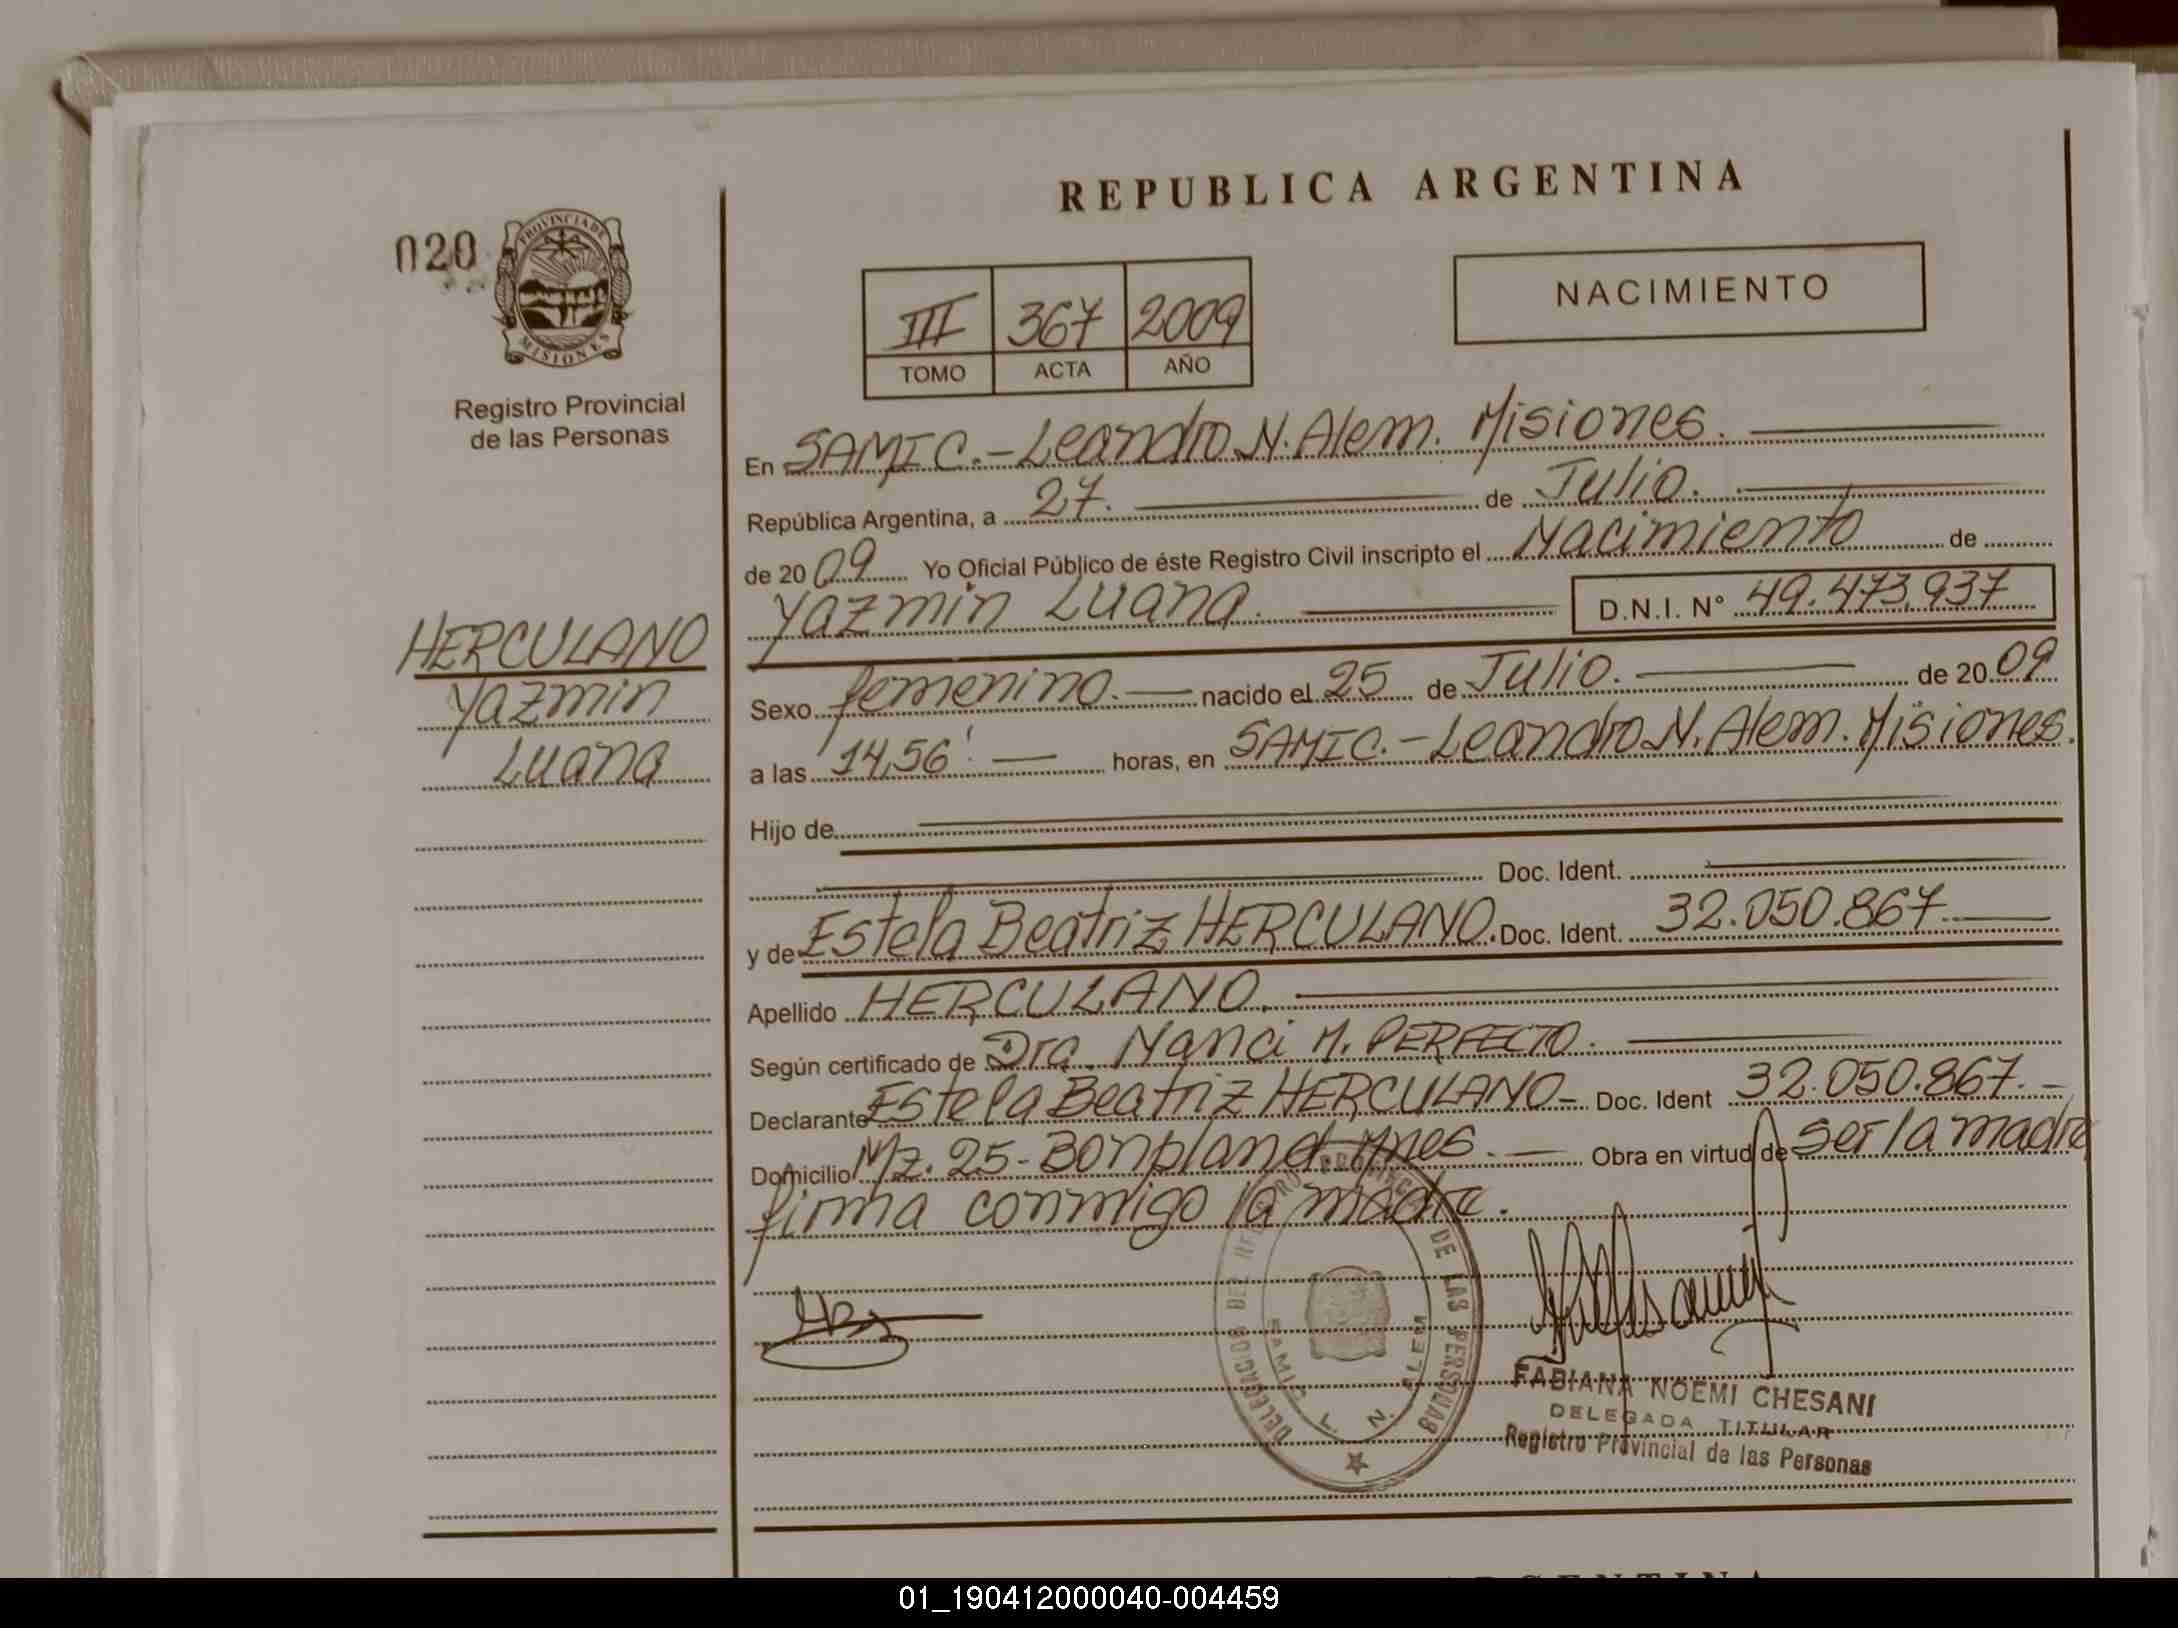 REPUBLICA ARGENTINA
020
PROVINCIA DE
MISIONES
Registro Provincial
de las Personas
III 367 2009
TOMO ACTA AÑO
NACIMIENTO
HERCULANO
Yazmin
Luana
En SAMIC.-Leandro N. Alem. Misiones.
República Argentina, a 27. de Julio.
de 2009 Yo Oficial Público de éste Registro Civil inscripto el Nacimiento de
Yazmin Luana. D.N.I. N° 49.473.937
Sexo femenino. nacido el 25 de Julio. de 2009
a las 14,56' horas, en SAMIC.-Leandro N. Alem. Misiones.
Hijo de
Doc. Ident.
y de Estela Beatriz HERCULANO. Doc. Ident. 32.050.867
Apellido HERCULANO.
Según certificado de Dra. Nanci M. PERFECTO.
Declarante Estela Beatriz HERCULANO- Doc. Ident 32.050.867.-
Domicilio Mz. 25-Bonpland Mnes. Obra en virtud de ser la madre
firma conmigo la madre.
DE LAS PERSONAS
SAMIC L. N. ALEM
FABIANA NOEMI CHESANI
DELEGADA TITULAR
Registro Provincial de las Personas
01_190412000040-004459